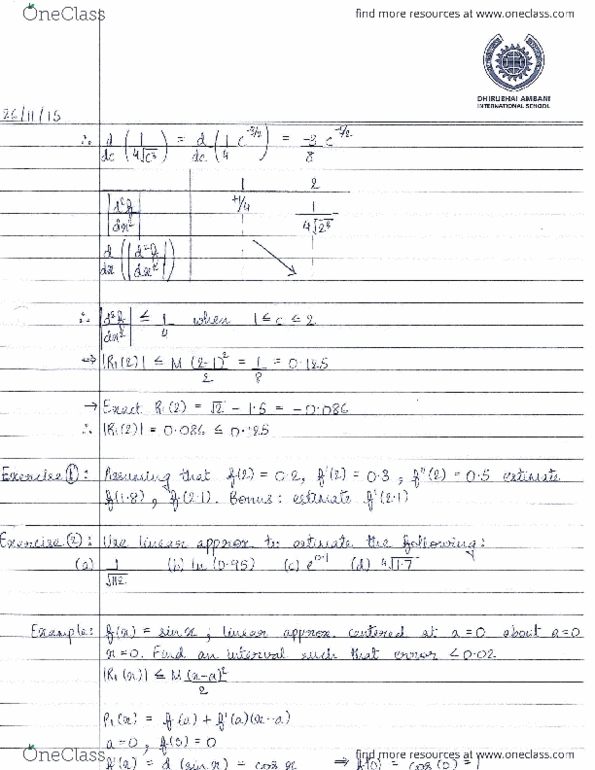 OneClass
find more resources at www.oneclass.com
DHIRUBHAI AMBANI
INTERNATIONAL SCHOOL
26/11/15
∴ d/dc (1/4√c³) = d/dc (1/4 c^-3/2) = -3/8 c^-5/2
1 2
|d²f/dx²| +1/4 1/4√2³
d/dx (|d²f/dx²|)
∴ |d²f/dx²| ≤ 1/4 when 1 ≤ c ≤ 2
⇔ |R₁(2)| ≤ M (2-1)²/2 = 1/8 = 0.125
→ Exact R₁(2) = √2 - 1.5 = -0.086
∴ |R₁(2)| = 0.086 ≤ 0.125
Exercise (1): Assuming that f(2) = 0.2, f'(2) = 0.3, f''(2) = 0.5 estimate
f(1.8), f(2.1). Bonus: estimate f'(2.1)
Exercise (2): Use linear approx to estimate the following:
(a) 1/ (b) ln(0.95) (c) e^0.1 (d) ⁴√1.7
Example: f(x) = sin x, linear approx. centered at a=0 about a=0
x=0. Find an interval such that error ≤ 0.02
|R₁(x)| ≤ M (x-a)²/2
P₁(x) = f(a) + f'(a)(x-a)
a=0, f(0) = 0
f'(x) = d (sin x) = cos x ⇒ f'(0) = cos(0) = 1
OneClass
find more resources at www.oneclass.com